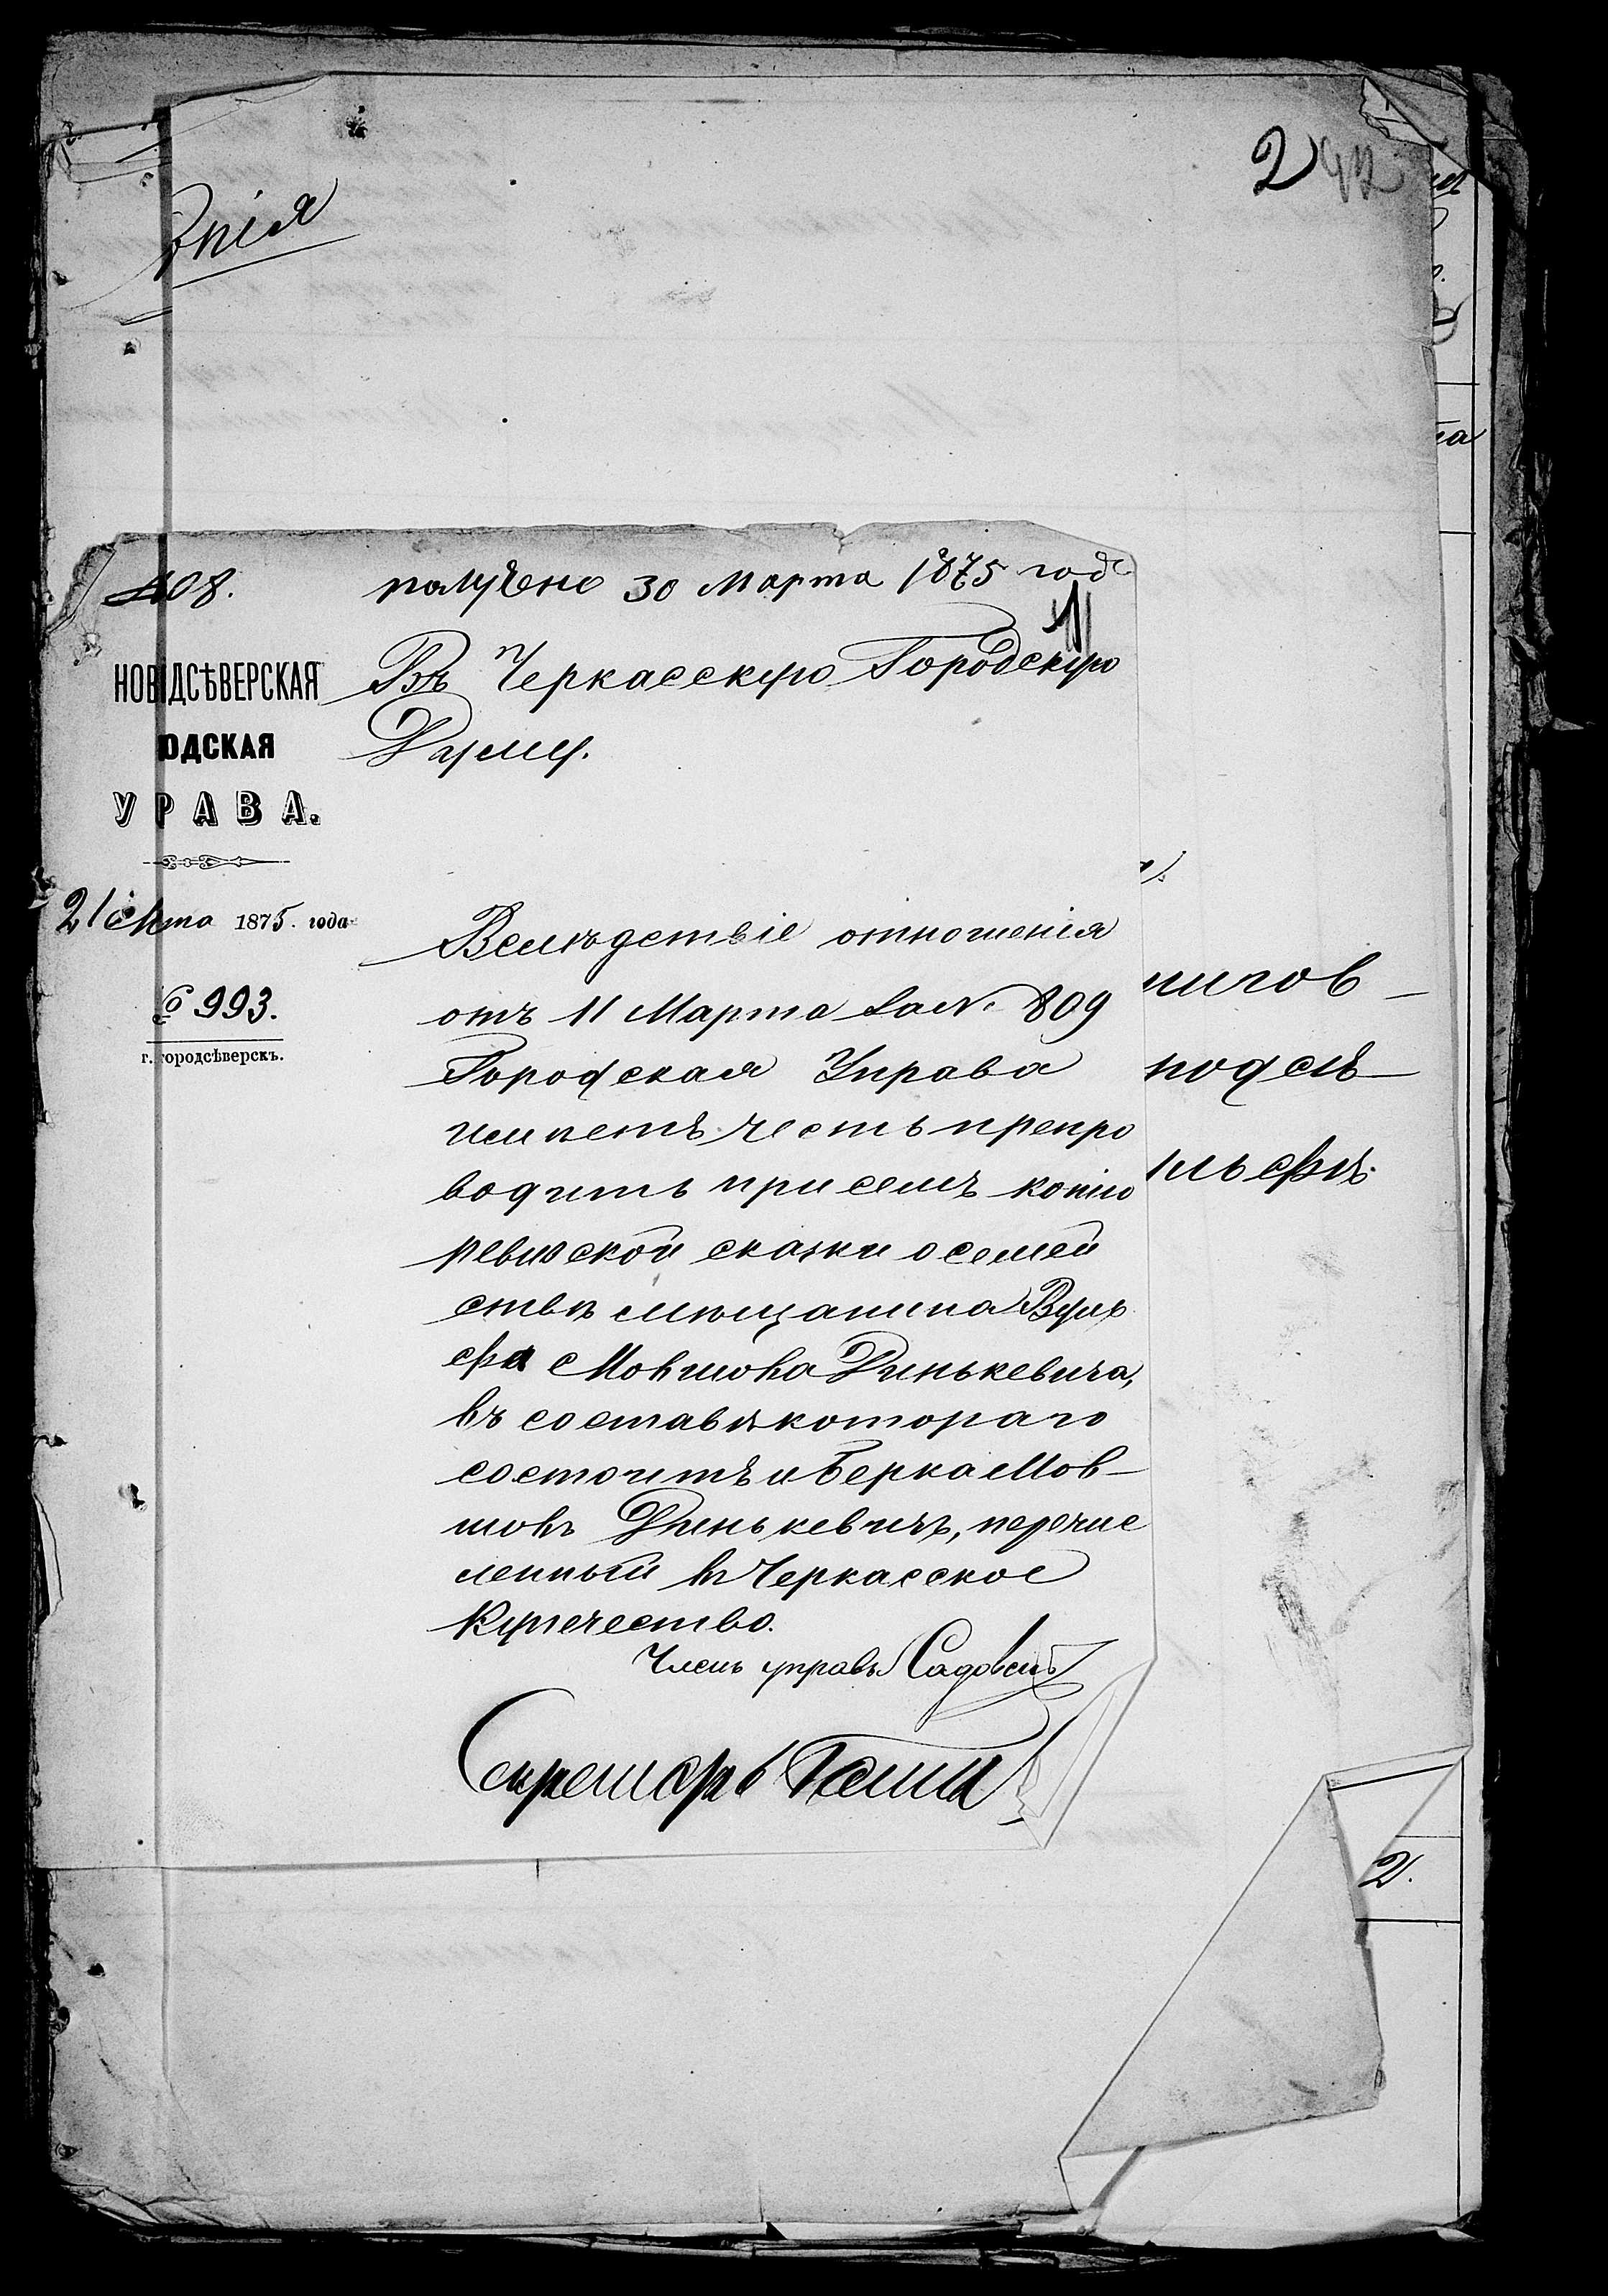 2 42
ѣнія
408.
получено 30 Марта 1875 года
НОВ ДСѢВЕРСКАЯ
ОДСКАЯ
У РАВА.
21 Марта 1875. года
№ 993.
г. городсѣверскъ.
11
Въ Черкасскую Городскую
Думу.
Вслѣдствіе отношенія
отъ 11 Марта за № 809
Городская Управа
имѣетъ честь препро
водить при семъ копію
ревизской сказки о семей
ствѣ мѣщанина Вуль
фа Мовшова Динькевича,
въ составѣ котораго
состоитъ и Берка Мов-
шовъ Динькевичъ, перечис
ленный въ Черкасское
Купечество.
Членъ управы
Секретарь
нигов-
подслѣ-
льефъ.
та
2.